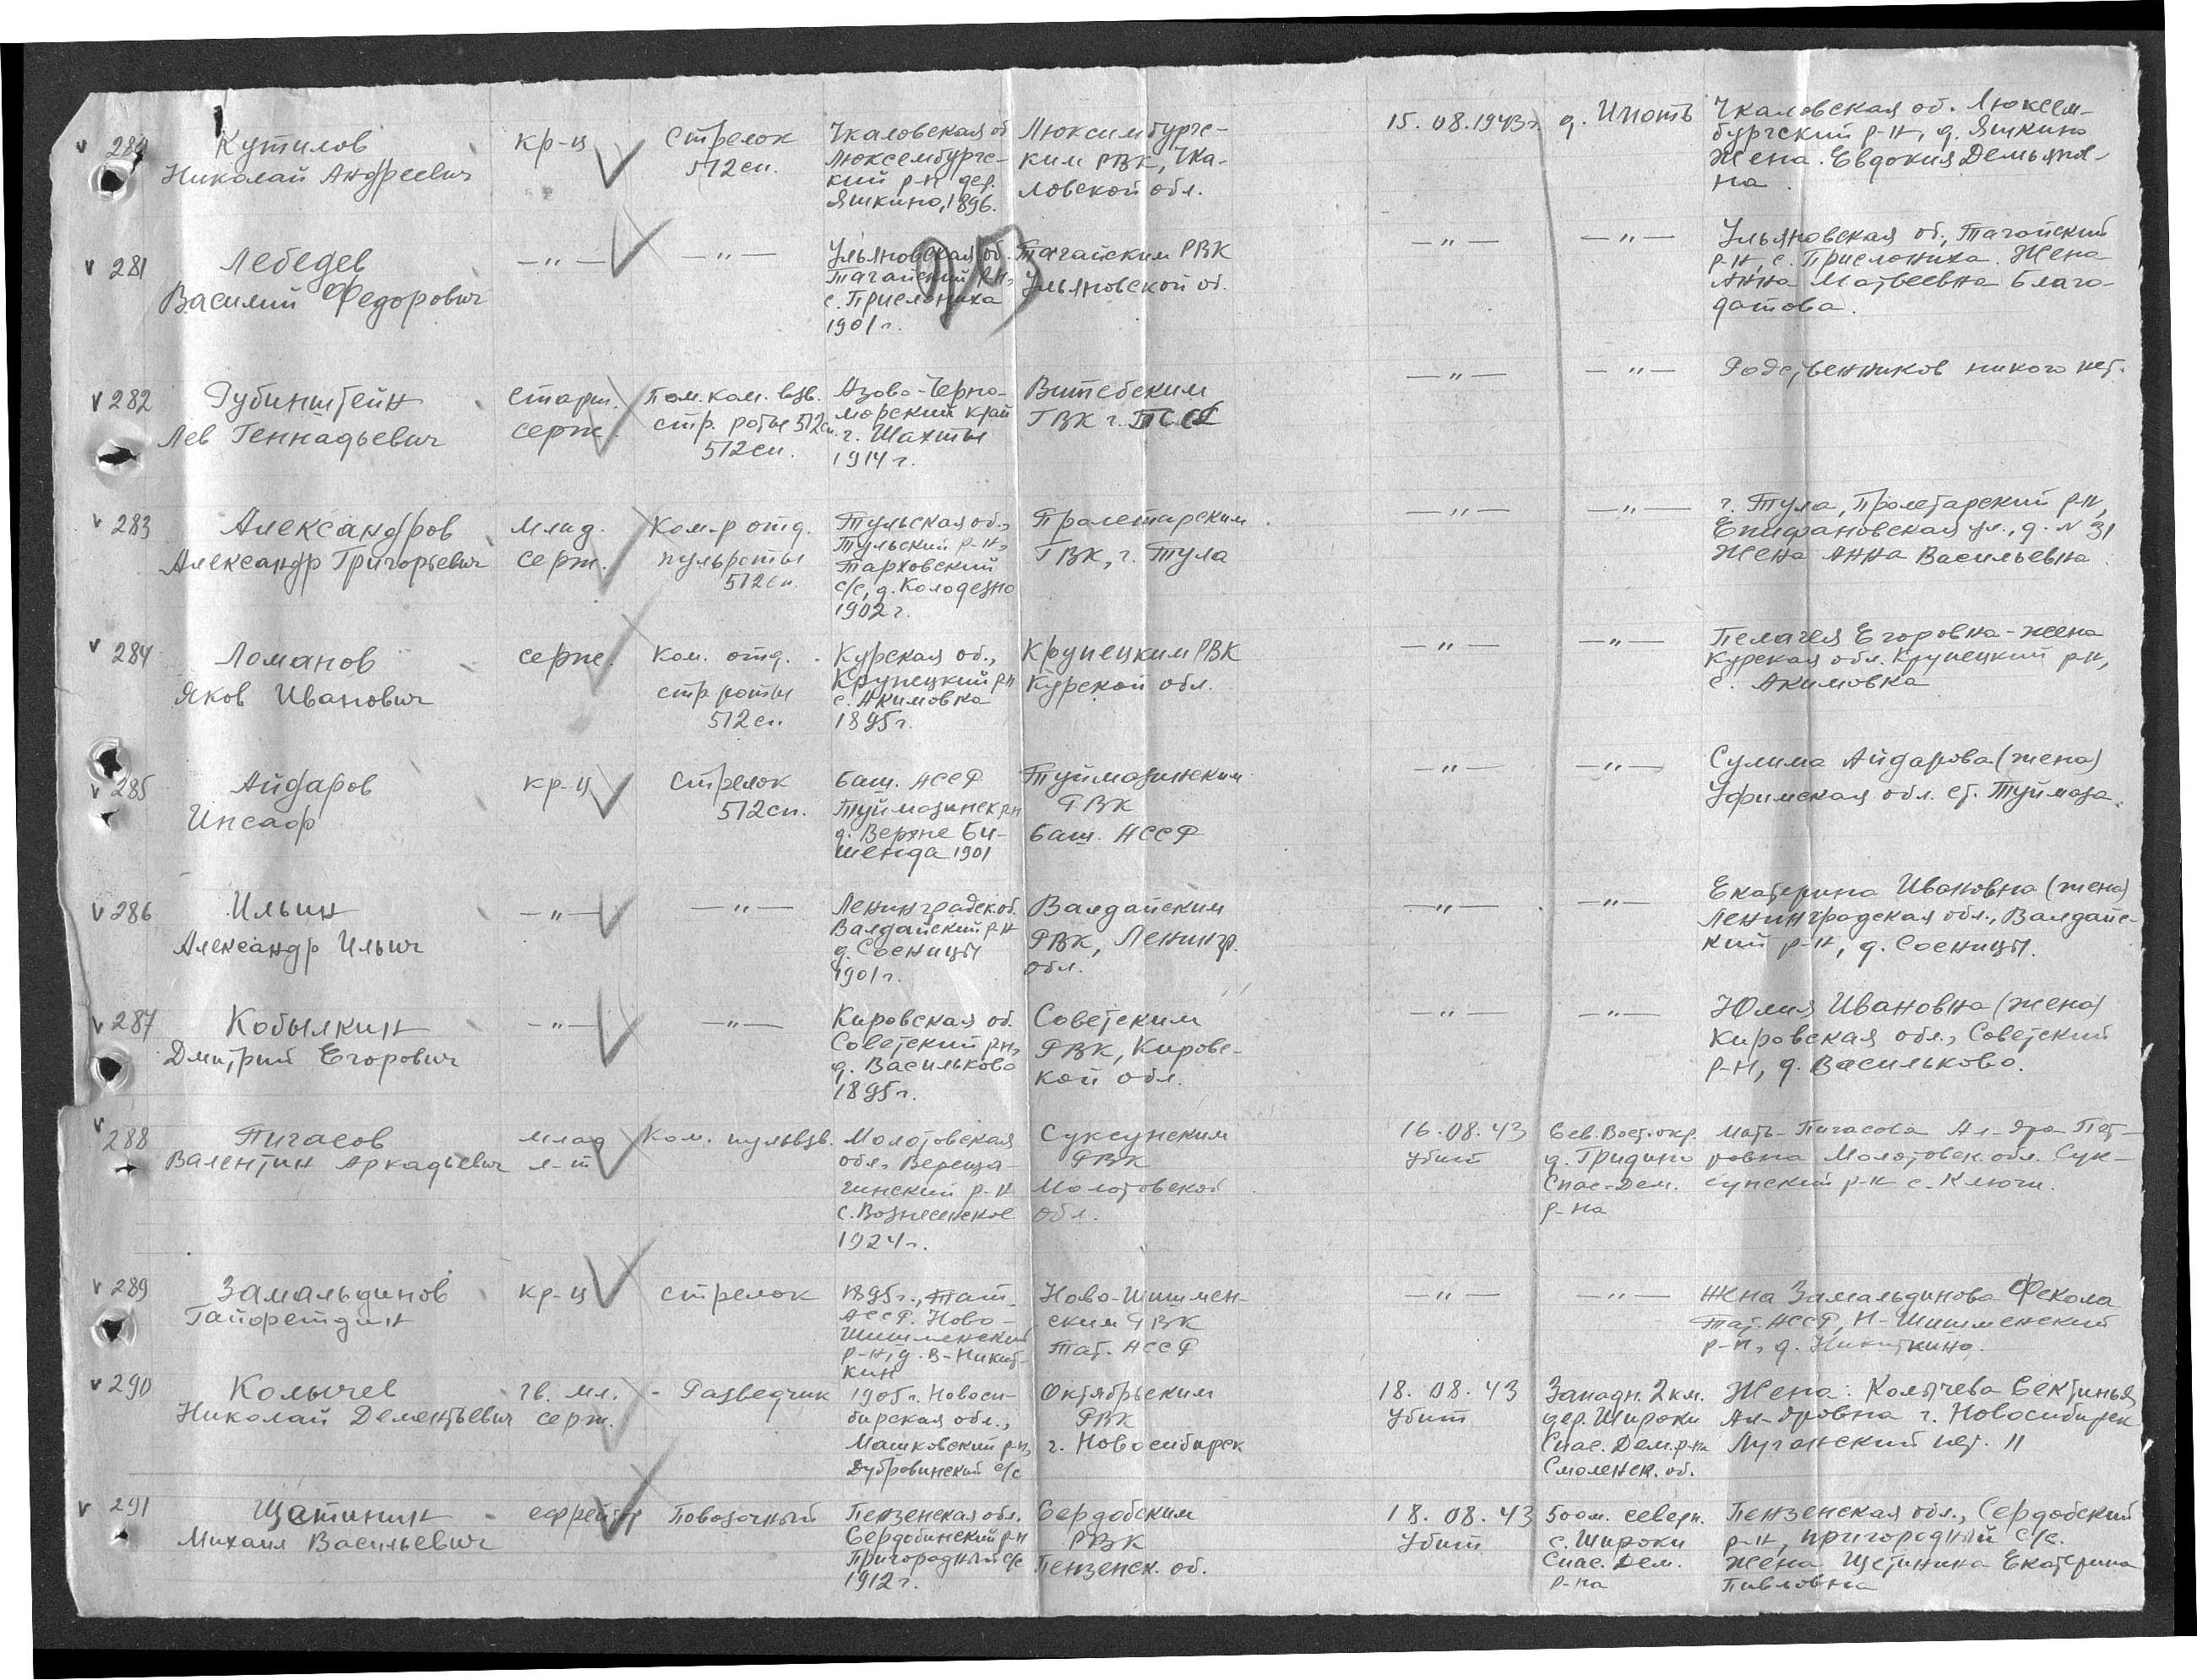 280 Кутилов Николай Андреевич
кр-ц
стрелок 512 сп.
Чкаловская об
Люксембургс-
кий р-н дер.
Яшкино, 1896.
Люксимбургс-
ким РВК, Чка-
ловской обл.
15.08.1943г.
д. Ипоть
Чкаловская об. Люксем-
бургский р-н, д. Яшкино
жена. Евдокия Демьянов-
на.
281 Лебедев
Василий Федорович
—"—
—"—
Ульяновская об.
Тагайский р-н,
с. Прислониха
1901 г.
Тагайским РВК
Ульяновской об.
—"—
—"—
Ульяновская об., Тагайский
р-н, с. Прислониха. Жена
Анна Матвеевна Благо-
датова.
282 Рубинштейн
Лев Геннадьевич
старш.
серж.
Пом. ком. взв.
стр. роты 512сп.
512 сп.
Азово-Черно-
морский край
г. Шахты
1914 г.
Витебским
ГВК г.
—"—
—"—
Родственников никого нет.
283 Александров
Александр Григорьевич
млад.
серж.
Ком-р отд.
пульроты
512 сп.
Тульская об.,
Тульский р-н,
Тарховский
с/с, д. Колодезно
1902 г.
Пролетарским
ГВК, г. Тула
—"—
—"—
г. Тула, Пролетарский р-н,
Епифановская ул., д. N 31
Жена Анна Васильевна
284 Ломанов
Яков Иванович
серж.
Ком. отд.
стр роты
512 сп.
Курская об.,
Крупецкий рн
с. Акимовка
1895 г.
Крупецким РВК
Курской обл.
—"—
—"—
Пелагея Егоровна - жена
Курская обл. Крупецкий рн,
с. Акимовка
285 Айдаров
Инсаф
кр-ц
стрелок
512 сп.
Баш. АССР
Туймазинск рн
д. Верхне Би-
шенда 1901
Туймазинским
РВК
Баш. АССР
—"—
—"—
Сулима Айдарова (жена)
Уфимская обл. ст. Туймаза.
286 Ильин
Александр Ильич
—"—
—"—
Ленинградск. об.
Валдайский р-н
д. Соеницы
1901 г.
Валдайским
РВК, Ленингр.
обл.
—"—
—"—
Екатерина Ивановна (жена)
Ленинградская обл., Валдайс-
кий р-н, д. Соеницы.
287 Кобылкин
Дмитрий Егорович
—"—
—"—
Кировская об.
Советский рн,
д. Васильково
1895 г.
Советским
РВК, Кировс-
кой обл.
—"—
—"—
Юлия Ивановна (жена)
Кировская обл., Советский
р-н, д. Васильково.
288 Пигасов
Валентин Аркадьевич
млад
л-т
Ком. пульвзв.
Молотовская
обл. Вереща-
гинский р-н
с. Вознесенское
1924 г.
Суксунским
РВК
Молотовской
обл.
16.08.43
убит
Сев. Вост. окр.
д. Гридино
Спас-Дем.
р-на
Мать - Пигасова Ал-дра Пет-
ровна Молотовск. обл. Сук-
сунский р-н с. Ключи.
289 Замальдинов
Гайфетдин
кр-ц
стрелок
1895 г., Тат.
АССР. Ново-
Шишменский
р-н, д. В-Никит-
кин
Ново-Шишмен-
ским РВК
Тат. АССР
—"—
—"—
Жена Замальдинова Фекола
Тат. АССР, Н-Шишменский
р-н, д. Никиткино.
290 Колычев
Николай Дементьевич
гв. мл.
серж.
- Разведчик
1905 г. Новоси-
бирская обл.,
Машковский р-н,
Дубровинский с/с
Октябрьским
РВК
г. Новосибирск
18.08.43
Убит
Западн. 2 км.
дер. Широки
Спас. Дем. р-на
Смоленск. об.
Жена: Колычева Сектинья
Ал-дровна г. Новосибирск
Луганский пер. 11
291 Щетинин
Михаил Васильевич
ефрейтор
Повозочный
Пензенская обл.
Сердобинский р-н
Пригородный с/с
1912 г.
Сердобским
РВК
Пензенск. об.
18.08.43
Убит
500 м. северн.
с. Широки
Спас. Дем.
р-на
Пензенская обл., Сердобский
р-н, пригородный с/с.
жена Щетинина Екатерина
Павловна